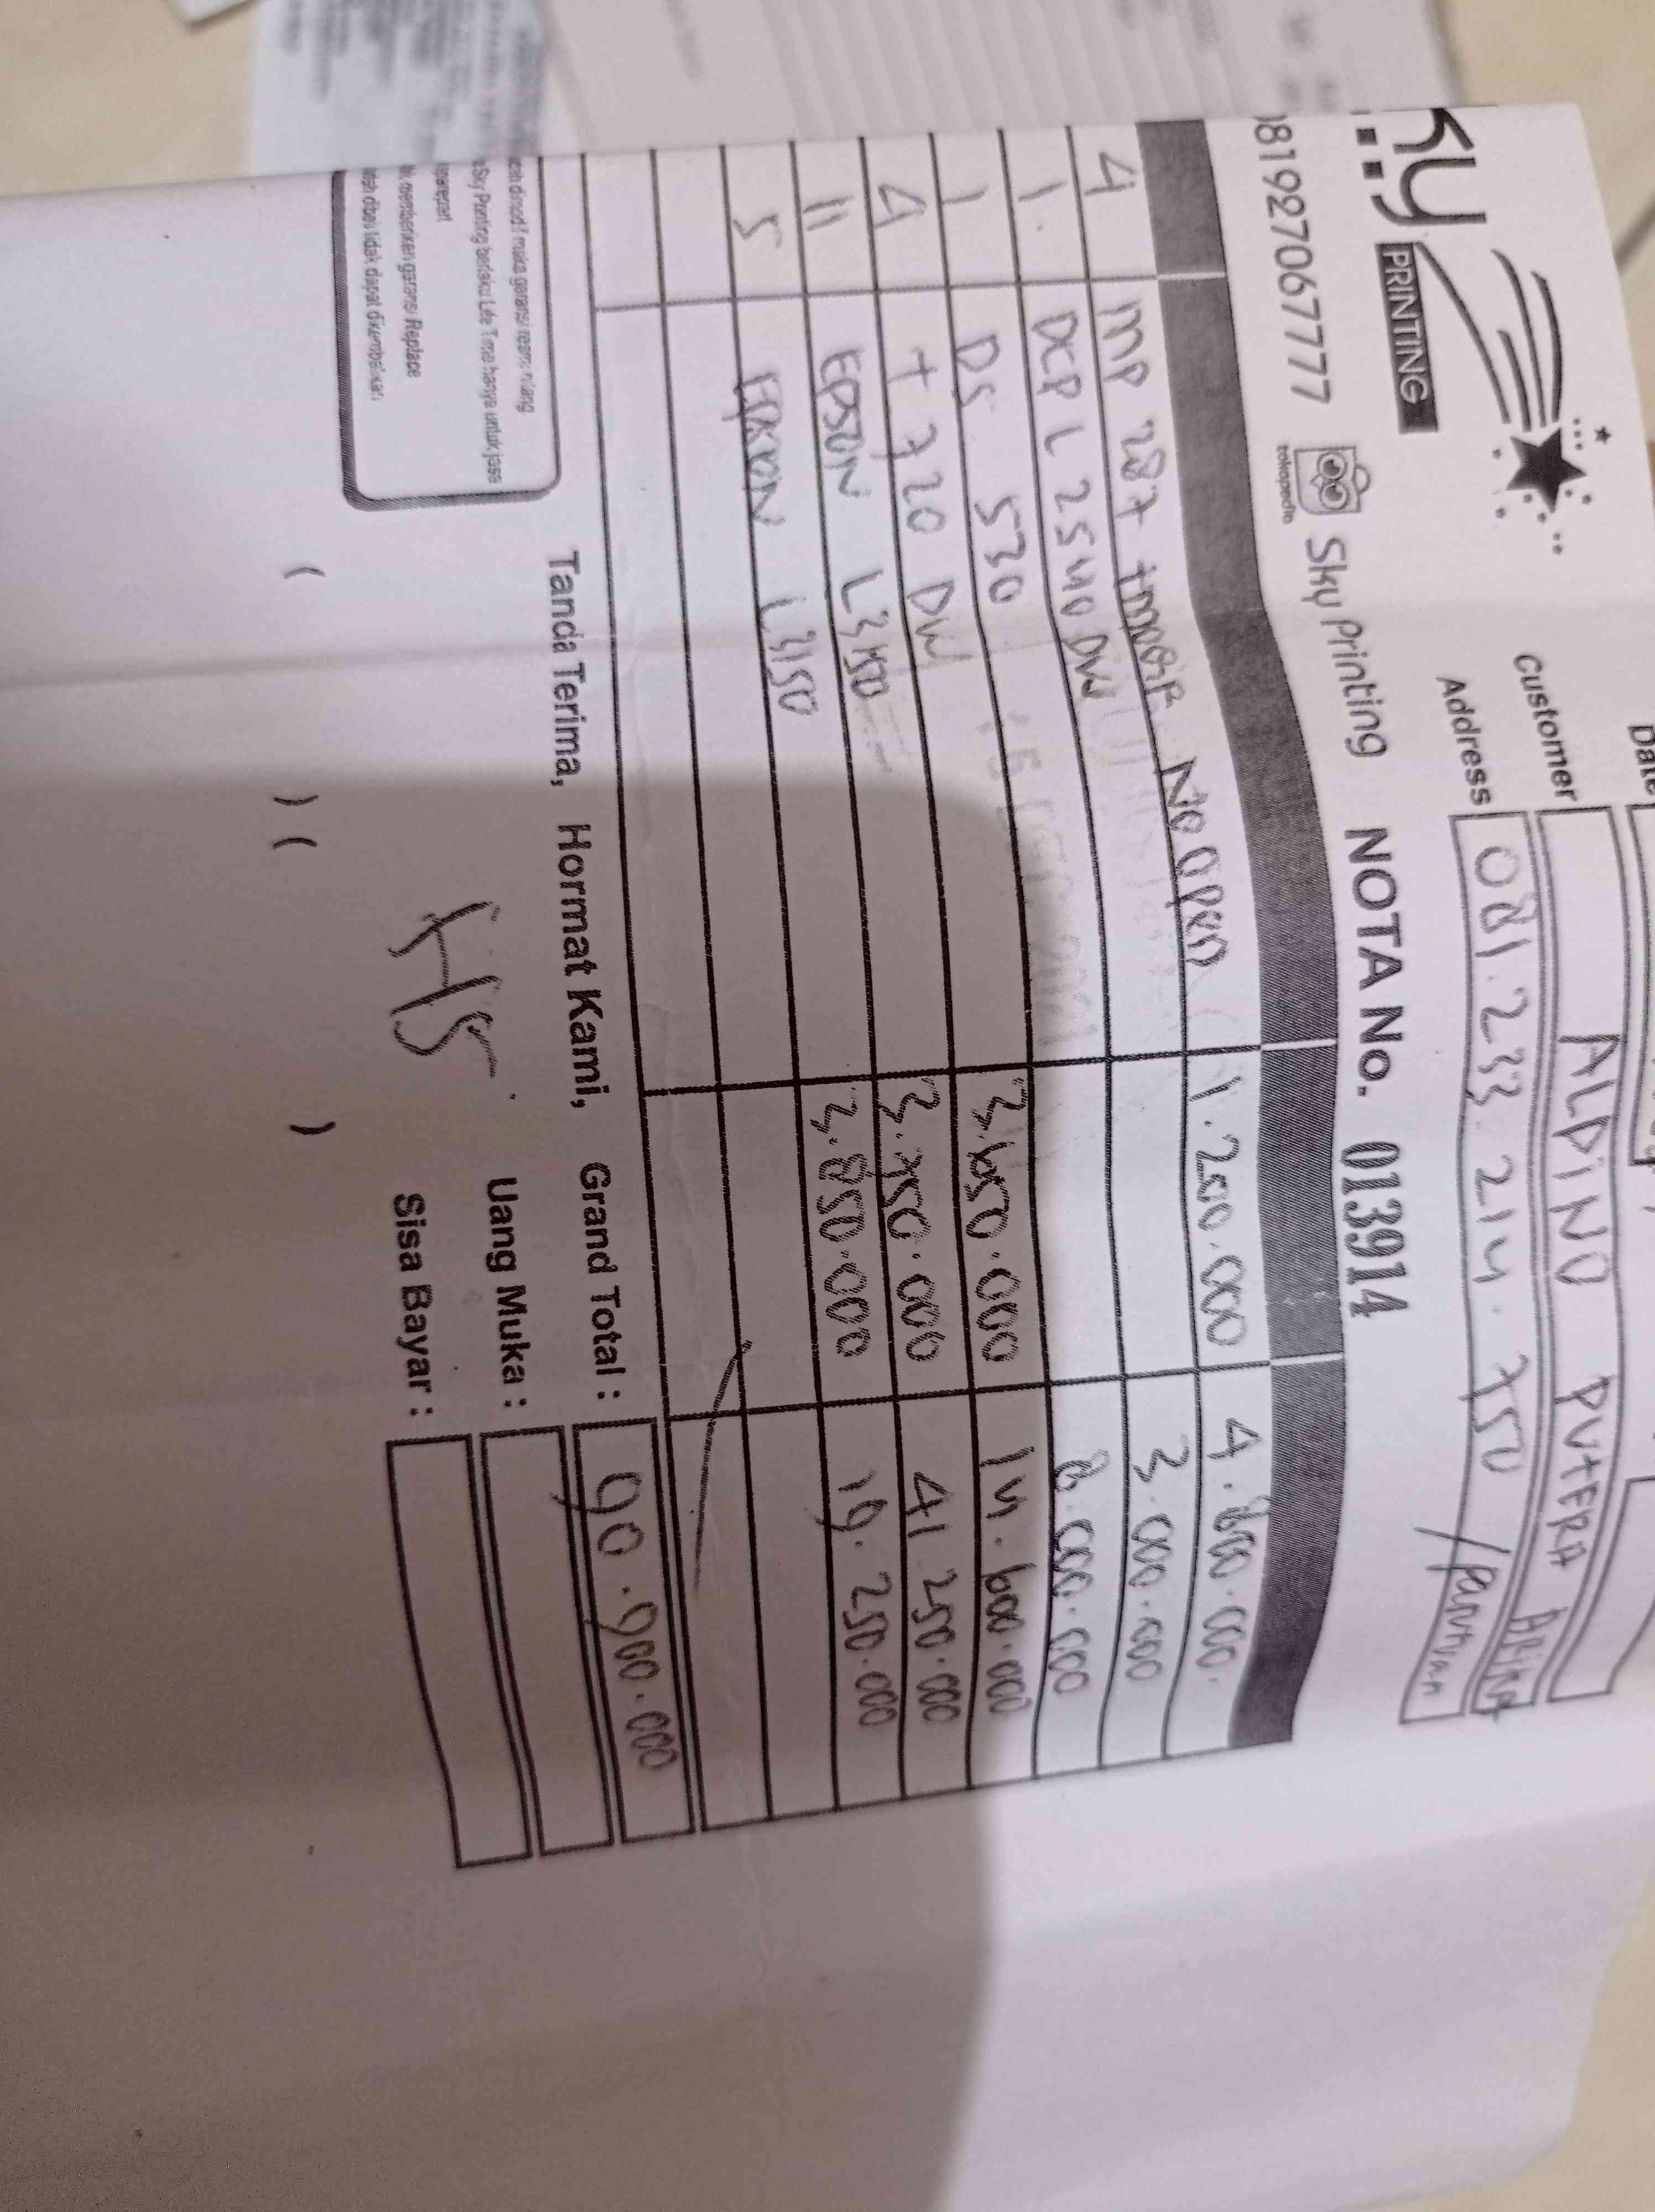 Date
Customer ALDINO PUTERA
Address 081.233.214.750
PRINTING
081927067777 tokopedia Sky Printing NOTA No. 013914
4 MP 287 No open 1.200.000 4.800.000.
1. DCP L 2540 DW 3.000.000
1 DS 530 8.000.000
4 T 720 DW 3.650.000 14.600.000
11 EPSON L3150 3.750.000 41 250.000
5 EPSON L3150 3.850.000 19.250.000
Tanda Terima, Hormat Kami, Grand Total : 90.900.000
Uang Muka :
Sisa Bayar :
( ) ( )
Sky Printing berlaku Life Time hanya untuk jasa
memberikan garansi Replace
tidak dapat dikembalikan